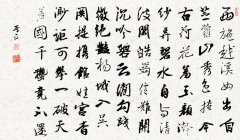 西施越溪女出自
苧蘿山秀色掩今
古荷花羞玉顏浣
紗弄碧水自與清
波閑皓齒信難開
沉吟碧雲間勾踐
徵絕艷揚蛾入吳
關提攜館娃宮杳
渺詎可攀一破夫
差國千秋竟不還